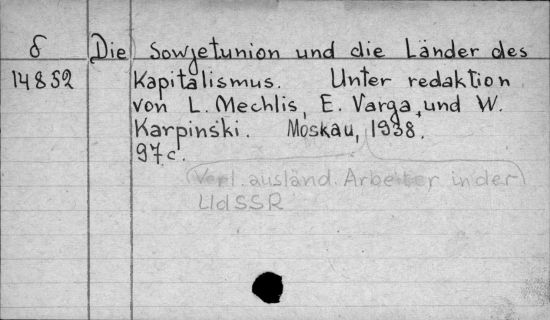 δ Die Sowjetunion und die Länder des
14852 Kapitalismus. Unter redaktion
von L. Mechlis, E. Varga, und W.
Karpinski. Moskau, 1938.
97 c.
(Verl. ausländ. Arbeiter in der)
UdSSR